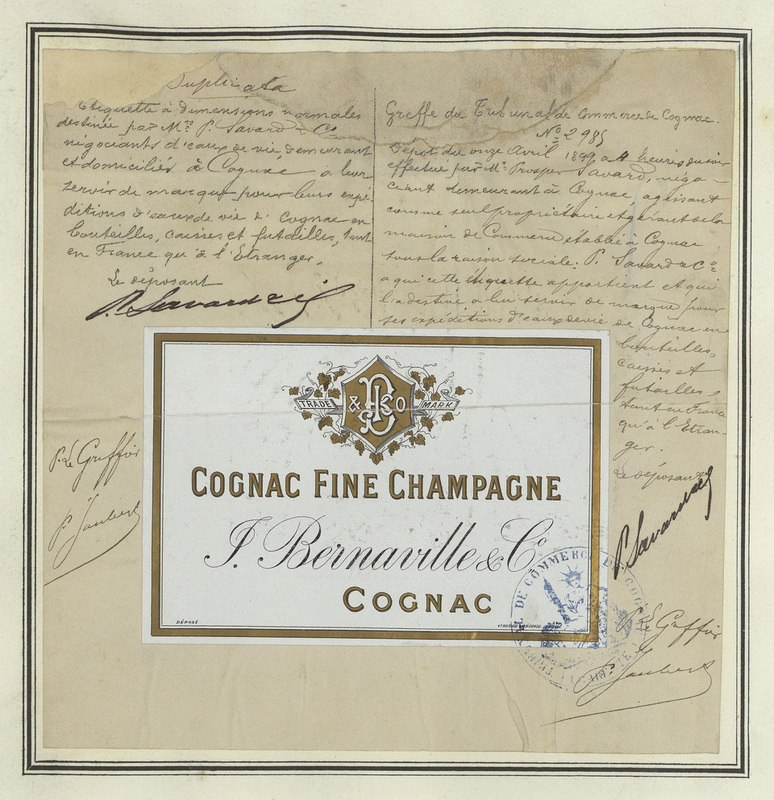 Duplicata
Etiquette à dimensions normales
destinée par Mrs P. Savard & Cie
négociants d'eaux de vie, demeurant
et domiciliés à Cognac a leur
servir de marque pour leurs expé-
ditions d'eaux de vie de Cognac en
bouteilles, caisses et futailles, tant
en France qu'à l'Etranger.
Le déposant
P. Savard & Cie
Greffe du Tribunal de Commerce de Cognac.
No 2985
Dépôt du onze Avril 1899 a 4 heures du soir
effectué par Mr Prosper Savard, négo-
ciant demeurant à Cognac, agissant
comme seul propriétaire et gérant de la
maison de Commerce établie à Cognac
sous la raison sociale: P. Savard & Co
a qui cette étiquette appartient et qui
l'a destinée a leur servir de marque pour
ses expéditions d'eaux de vie de Cognac en
bouteilles,
caisses et
futailles,
tant en France
qu'à l'Etran-
ger.
Le déposant
P. Savard & Cie
P. Le Greffier
P. Jaubert
TRADE MARK
& Co
COGNAC FINE CHAMPAGNE
J. Bernaville & Co
COGNAC
DÉPOSÉ
TRIBUNAL DE COMMERCE DE COGNAC
P. Le Greffier
P. Jaubert